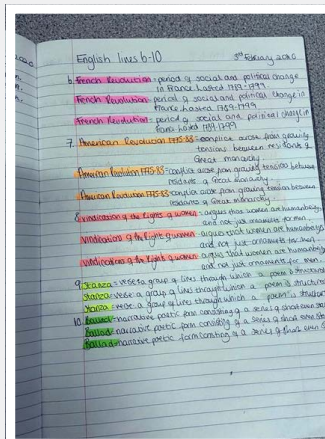 English lines 6-10 3rd February 2020
6. French Revolution - period of social and political change
in France. lasted 1789-1799
French Revolution - period of social and political change in
France. lasted 1789-1799
French Revolution - period of social and political change in
France. lasted 1789-1799
7. American Revolution 1775-83 - conflict arose from growing
tensions between residents of
Great monarchy.
American Revolution 1775-83 - conflict arose from growing tensions between
residents of Great monarchy.
American Revolution 1775-83 - conflict arose from growing tensions between
residents of Great monarchy.
8. vindication of the Rights of women - argues that women are human beings
and not just ornaments for men.
vindication of the Rights of women - argues that women are human beings
and not just ornaments for men.
vindication of the Rights of women - argues that women are human beings
and not just ornaments for men.
9. Stanza - verse, a group of lines through which a poem is structured
Stanza - verse, a group of lines through which a poem is structured
Stanza - verse, a group of lines through which a poem is structured
10. Ballad - narrative poetic form consisting of a series of short even
Ballad - narrative poetic form consisting of a series of short even
Ballad - narrative poetic form consisting of a series of short even